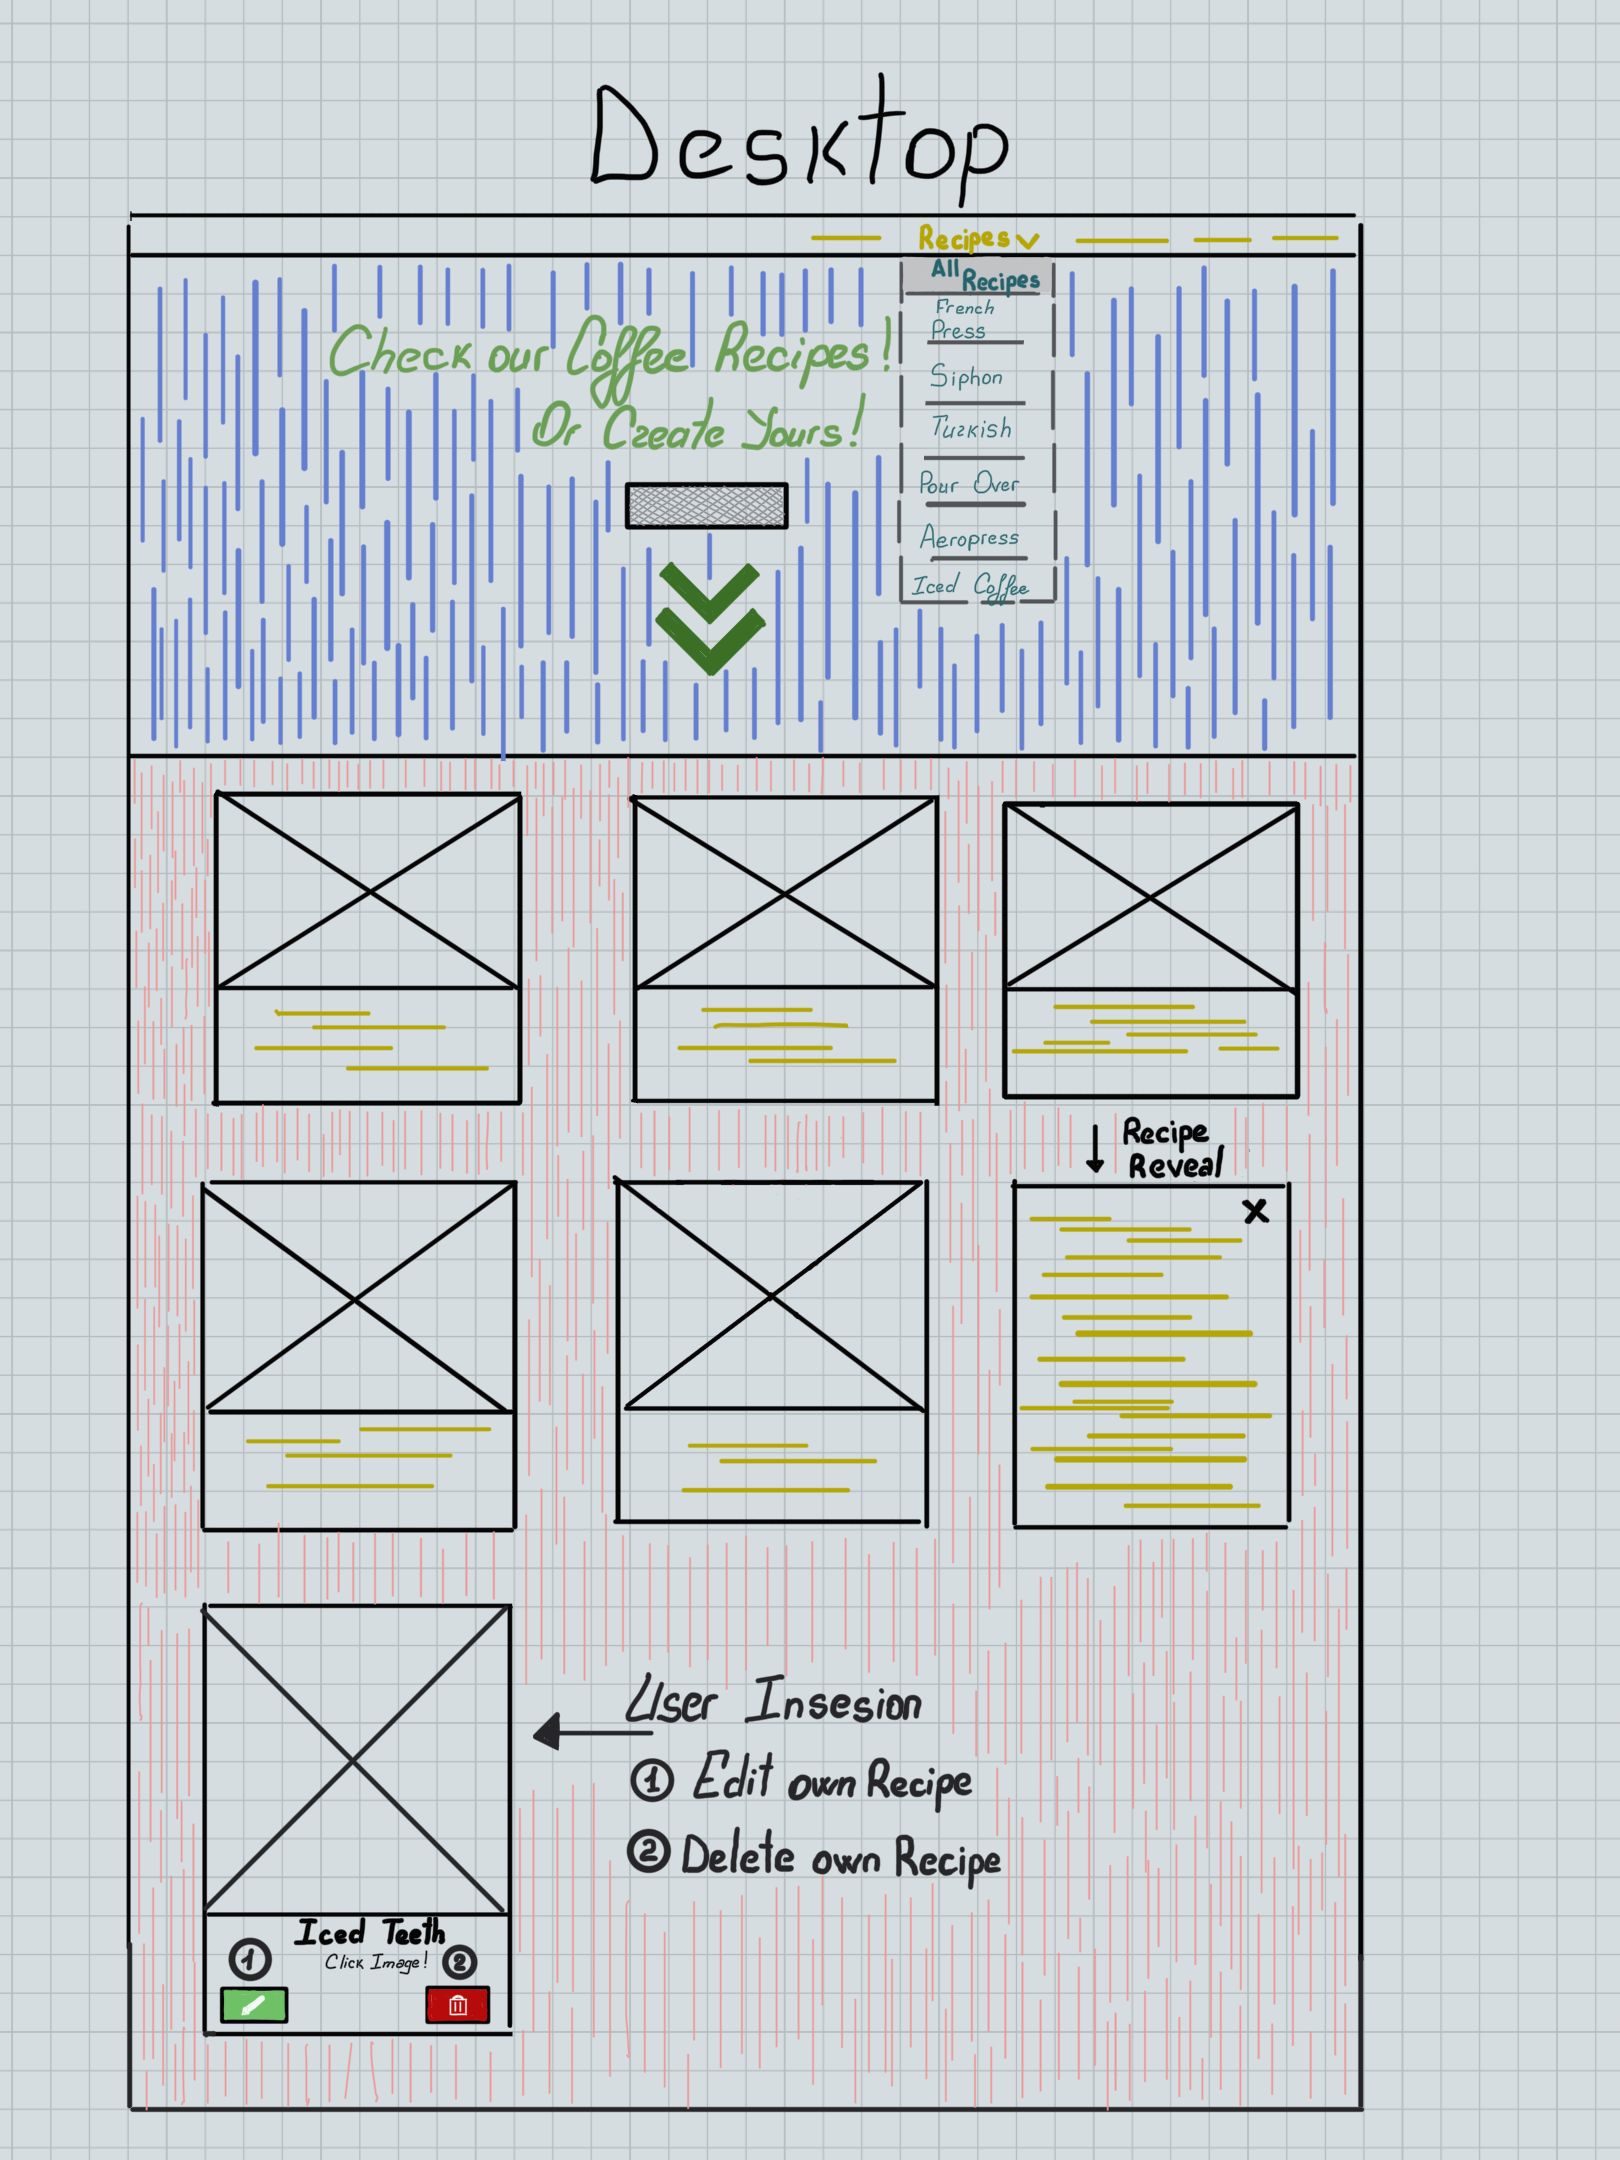 Desktop
Recipes
All
Recipes
French
Press
Siphon
Turkish
Pour Over
Aeropress
Iced Coffee
Check our Coffee Recipes!
Or Create Yours!
Recipe
Reveal
X
User Insesion
1 Edit own Recipe
2 Delete own Recipe
Iced Teeth
1 Click Image! 2